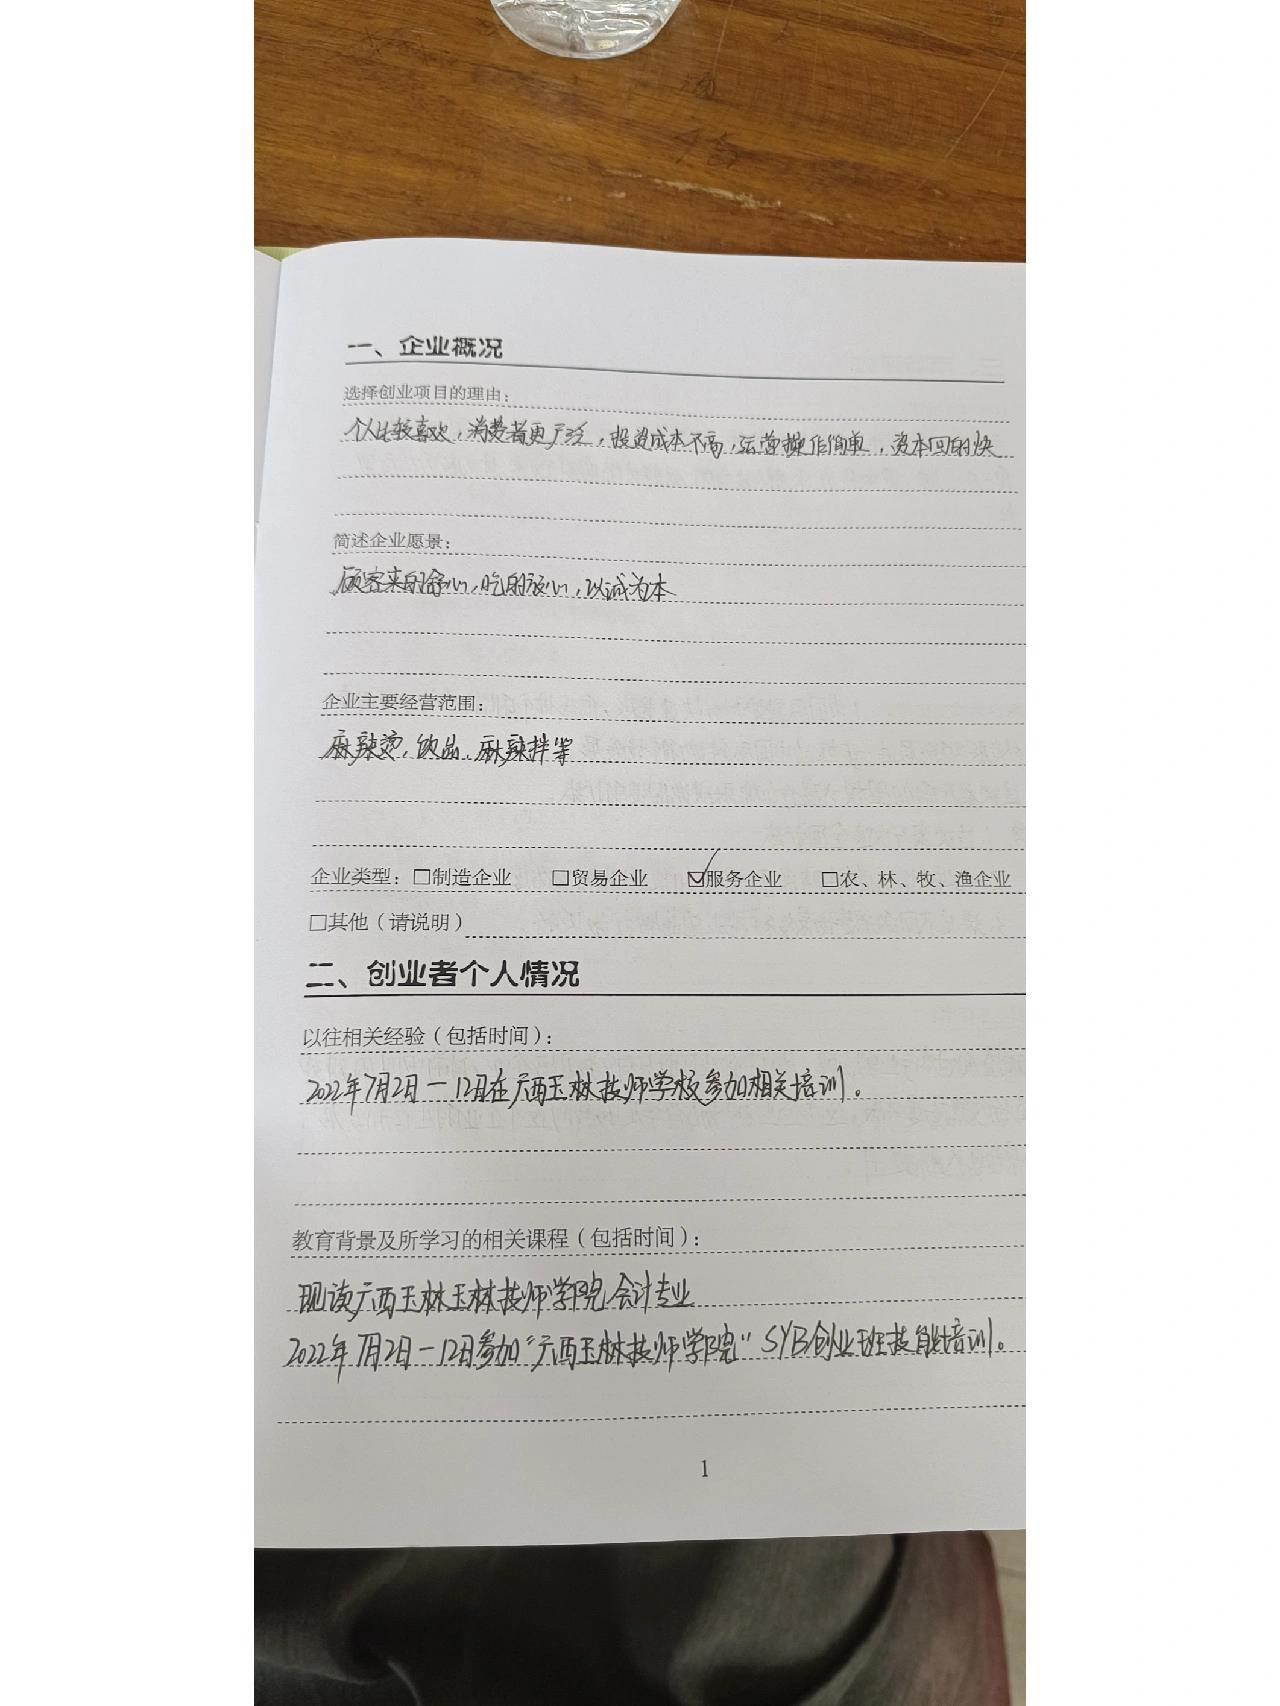 一、企业概况
选择创业项目的理由：
个人比较喜欢，消费者更广泛，投资成本不高，运营操作简单，资本回的快
简述企业愿景：
顾客来的舒心，吃的放心，以诚为本
企业主要经营范围：
麻辣烫，饮品，麻辣拌等
企业类型：□制造企业 □贸易企业 ☑服务企业 □农、林、牧、渔企业
□其他（请说明）
二、创业者个人情况
以往相关经验（包括时间）：
2022年7月2日一12日在广西玉林技师学校参加相关培训。
教育背景及所学习的相关课程（包括时间）：
现读广西玉林玉林技师学院会计专业
2022年7月2日一12日参加“广西玉林技师学院”SYB创业班技能培训。
1